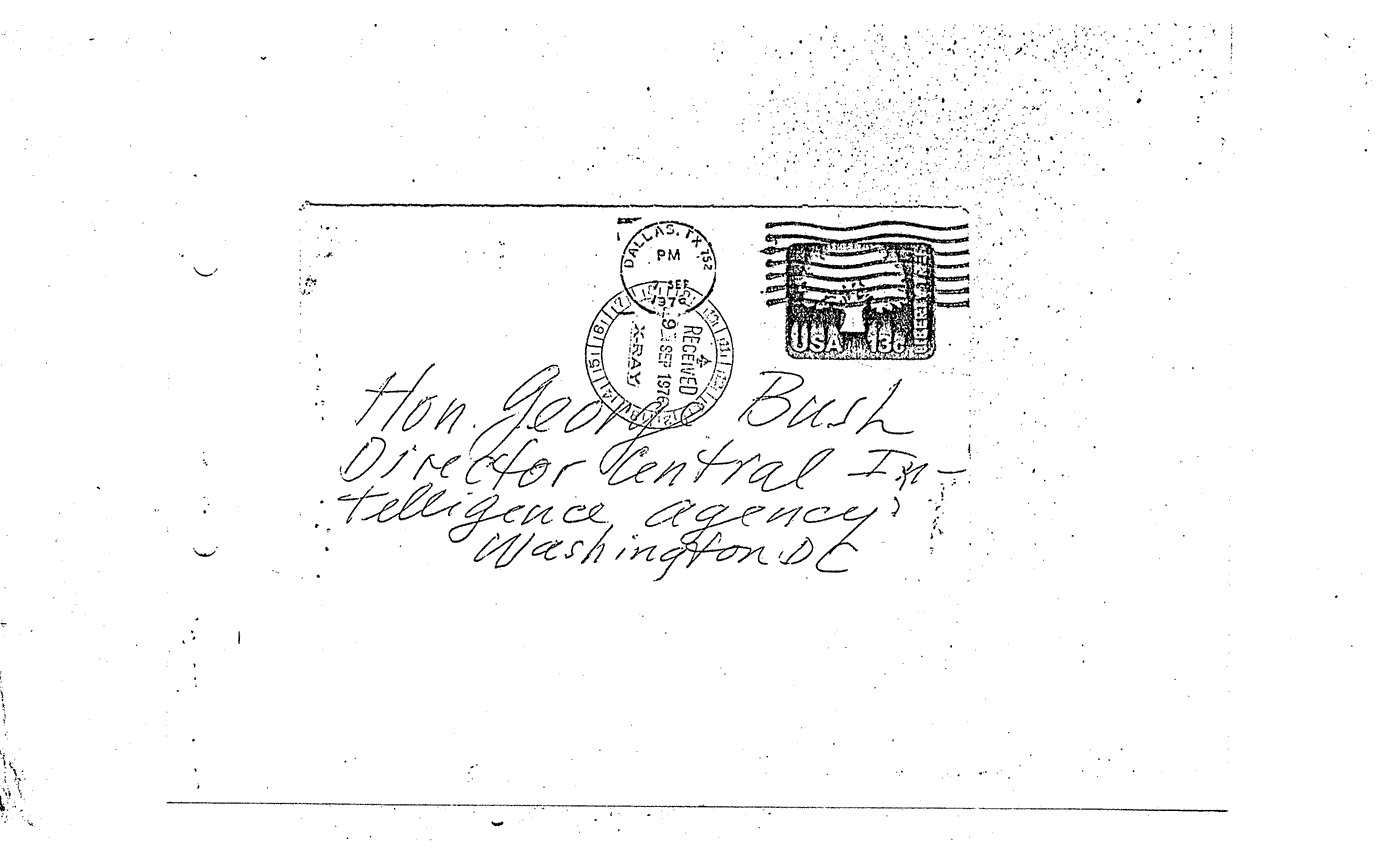 DALLAS, TX 752
PM
SEP
1976
RECEIVED
9 SEP 1976
X-RAY
USA 13c
Hon. George Bush
Director Central In-
telligence agency
Washington DC